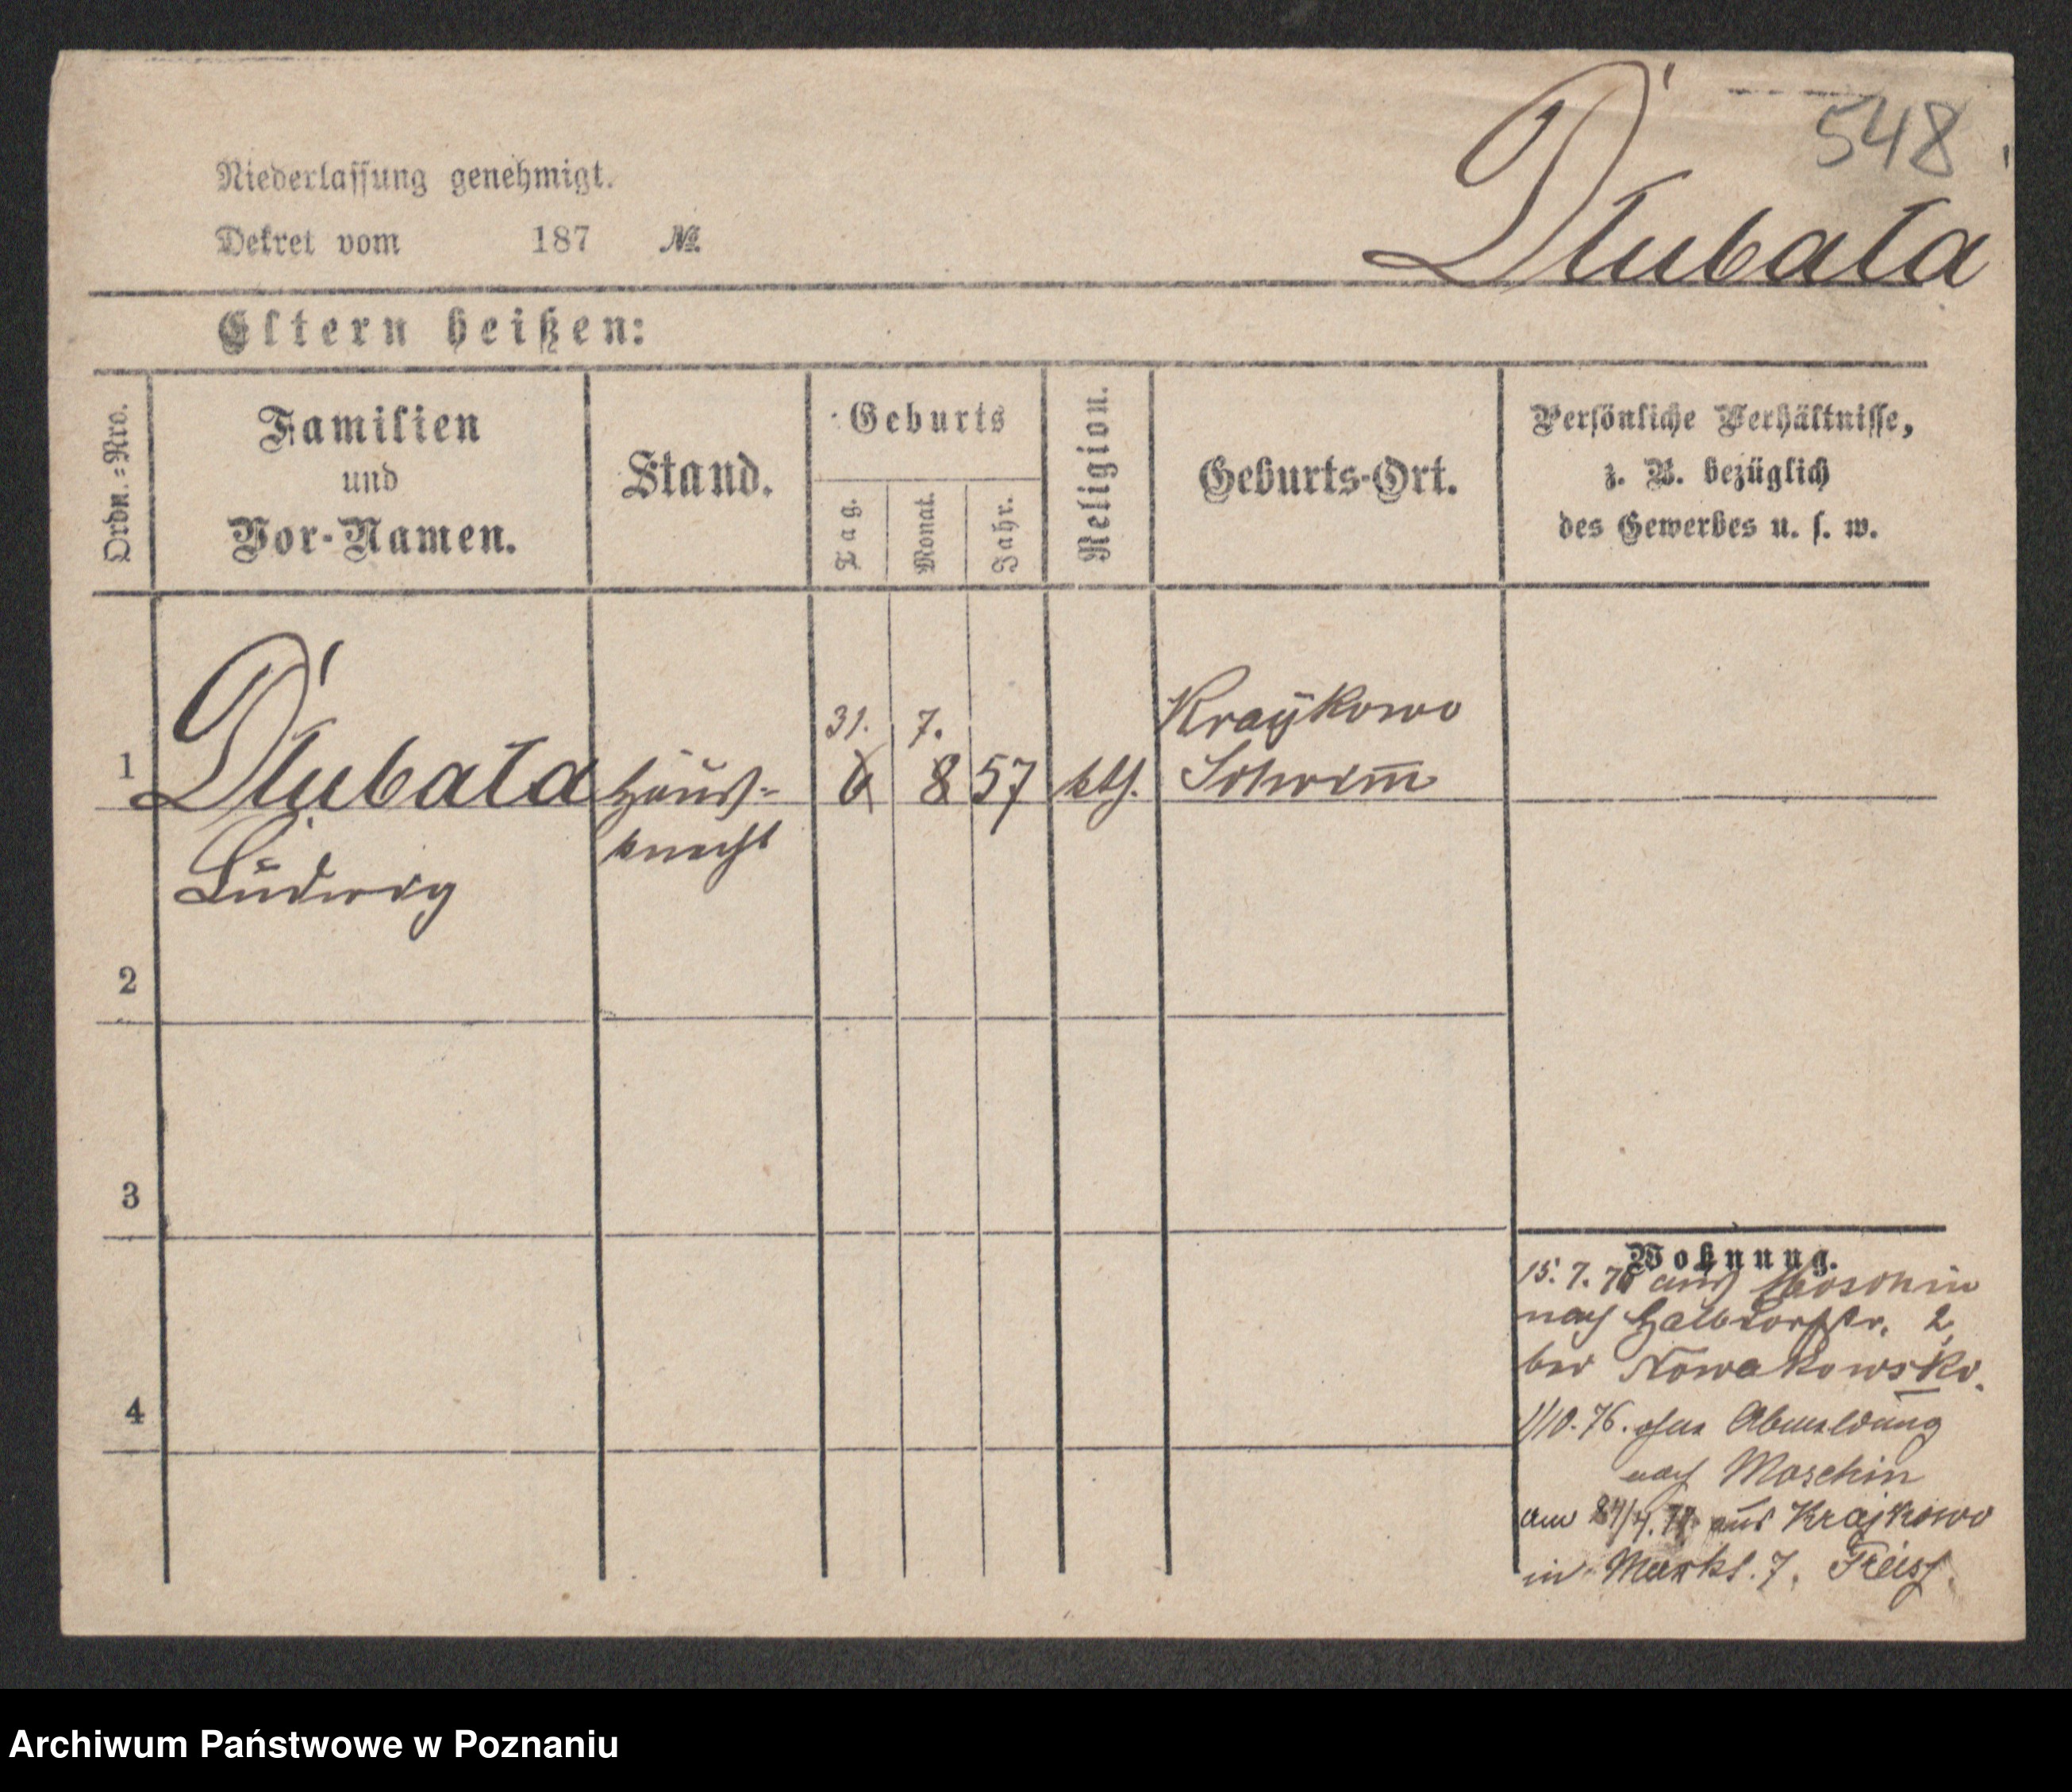 548
Dłubała
Niederlassung genehmigt.
Dekret vom 187 №
Eltern heißen:
Ordn.=Nro.
Familien
und
Vor-Namen.
Stand.
Geburts
Tag.
Monat.
Jahr.
Religion.
Geburts-Ort.
Persönliche Verhältnisse,
z. B. bezüglich
des Gewerbes u. s. w.
31. 7. Kraykowo
1 Dłubała Haus- 6 8 57 kth. Schrimm
knecht
Ludwig
2
3
4
Wohnung.
15. 7. 76 aus Moschin
nach Halbdorfstr. 2
bei Nowakowski.
1/10. 76. ohne Abmeldung
nach Moschin
am aus Krajkowo
in Markt. 7.
Archiwum Państwowe w Poznaniu